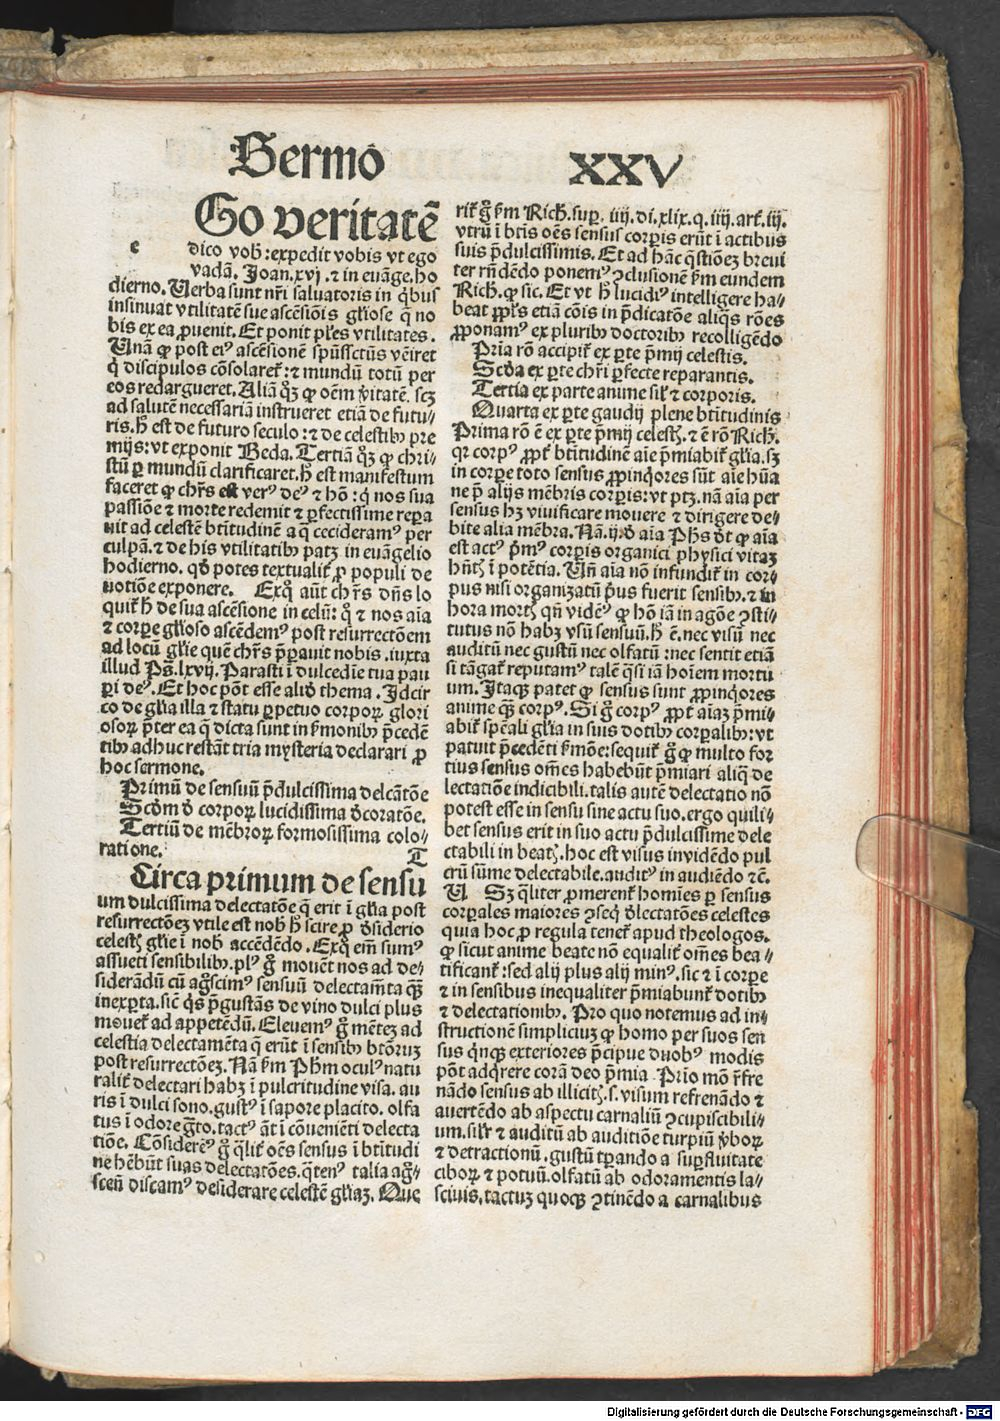 Sermo XXV
Go veritatē
e dico vob̄:expedit vobis vt ego
vadā. Joan.xvj.⁊ in euāge.ho
dierno. Uerba sunt nr̄i saluatoris in q̄bus
insinuat vtilitatē sue ascēsiōis gl̄iose q̄ no
bis ex ea ꝓuenit. Et ponit pl̄es vtilitates.
Unā ꝙ post eiꝰ ascēsionē spūssctūs vēiret
q̇ discipulos cōsolaret᷑:⁊ mundū totū per
eos redargueret. Aliā q̄ꝫ ꝙ oēm v̄itatē. scꝫ
ad salutē necessariā instrueret etiā de futu⸗
ris.h̄ est de futuro seculo:⁊ de celestibꝫ pre
mijs:vt exponit Beda. Tertiā q̄ꝫ ꝙ chri⸗
stū ꝑ mundū clarificaret.h̄ est manifestum
faceret ꝙ chr̄s est verꝰ deꝰ ⁊ hō:q̇ nos sua
passiōe ⁊ morte redemit ⁊ ꝑfectissime repera
uit ad celestē btītudinē a q̄ cecideramꝰ per
culpā.⁊ de his vtilitatibꝫ patꝫ in euāgelio
hodierno. qd̄ potes textualit᷑ ꝓ populi de
uotiōe exponere. Exq̇ aūt chr̄s dn̄s lo
quit᷑ h̄ de sua ascēsione in celū: q̇ ⁊ nos aīa
⁊ corꝑe gl̄ioso ascēdemꝰ post resurrectōem
ad locū gl̄ie quē chr̄s p̄parauit nobis.iuxta
illud Ps̄.lxvij.Parasti ī dulcedīe tua pau
ꝑi deꝰ. Et hoc pōt esse aliud thema. Idcir
co de gl̄ia illa ⁊ statu ꝑpetuo corporꝝ glori
osorꝝ p̄ter ea q̄ dicta sunt in ẜmonibꝫ p̄cedē
tibꝫ adhuc restāt tria mysteria declarari ꝓ
hoc sermone.
Primū de sensuū p̄dulcissima delectatōe
Scdm de corporꝝ lucidissima decoratōe.
Tertiū de mēbrorꝝ formosissima colo⸗
ratione. T
Circa primum de sensu
um dulcissima delectatōe q̄ erit ī gl̄ia post
resurrectōeꝫ vtile est nob̄ h̄ scire ꝓ desiderio
celestꝭ gl̄ie ī nob̄ accēdēdo. Exq̇ em̄ sumꝰ
assueti sensibilibꝫ.plꝰ g̊ mouēt nos ad de⸗
siderādū cū agn̄oscimꝰ sensuū delectamēta qꝫ
inexperta.sic̄ q̇s p̄gustās de vino dulci plus
mouet᷑ ad appetēdū. Eleuemꝰ g̊ mētes ad
celestia delectamēta q̄ erūt ī sensibꝫ btōruꝫ
post resurrectōeꝫ. Nā ẜm Ph̄m oculꝰ natu
ralit᷑ delectari habꝫ ī pulcritudine visa. au
ris ī dulci sono.gustꝰ ī sapore placito. olfa
tus ī odore grato.tactꝰ āt ī cōuenieti delecta
tiōe. Cōsideremꝰ g̊ q̄lit᷑ oēs sensus ī btītudi
ne hēbūt suas delectatōes.q̄tenꝰ talia agno⸗
scētes discamꝰ desiderare celestē gl̄iaꝫ. Que
rit᷑ g̊ ẜm Rich̄.suꝑ.iiij.di.xlix.q.iiij.art᷑.iij.
vtrū ī btīs oēs sensus corꝑis erūt ī actibus
suis p̄dulcissimis. Et ad hāc q̄stiōeꝫ breui
ter rn̄dēdo ponemꝰ ꝯclusionē ẜm eundem
Rich̄.ꝙ sic. Et vt h̄ lucidiꝰ intelligere ha⸗
beat ppl̄s etiā cōis in p̄dicatōe aliq̄s rōes
ꝓponamꝰ ex pluribꝫ doctoribꝫ recolligēdo
Prīa rō accipit᷑ ex ꝑte p̄mij celestis.
Scd̄a ex ꝑte chr̄i ꝑfecte reparantis.
Tertia ex parte anime sil̄r ⁊ corporis.
Quarta ex ꝑte gaudij plene btītudinis
Prima rō ē ex ꝑte p̄mij celestꝭ.⁊ ē rō Rich̄.
qr corpꝰ ꝓpt᷑ btītudinē aīe p̄miabit᷑ gl̄ia.sꝫ
in corꝑe toto sensus ꝓpinq̇ores sūt aīe hūa
ne p̄ alijs mēbris corꝑis:vt ptꝫ.nā aīa per
sensus hꝫ viuificare mouere ⁊ dirigere de⸗
bite alia mēbra. Nā.ij.de aīa Ph̄s dt̄ ꝙ aīa
est actꝰ p̄mꝰ corꝑis organici physici vitaꝫ
hn̄tꝭ ī potētia. Un̄ aīa nō infundit᷑ in cor⸗
pus nisi organizatū pr̄us fuerit sensibꝫ.⁊ in
hora mortꝭ qn̄ videmꝰ ꝙ hō iā in agōe ꝯsti⸗
tutus nō habꝫ vsū sensuū.h̄ ē.nec visū nec
auditū nec gustū nec olfatū:nec sentit etiā
si tāgat᷑ reputamꝰ talē q̄si iā hoīem mortu
um. Itaqꝫ patet ꝙ sensus sunt ꝓpinq̇ores
anime qꝫ corpꝰ. Si g̊ corpꝰ ꝓpt᷑ aīaꝫ p̄mi⸗
abit᷑ spēali gl̄ia in suis dotibꝫ corꝑalibꝫ:vt
patuit p̄cedēti ẜmōe:sequit᷑ g̊ ꝙ multo for
tius sensus om̄es habebūt p̄miari aliq̄ de
lectatiōe indicibili.talis autē delectatio nō
potest esse in sensu sine actu suo.ergo quili⸗
bet sensus erit in suo actu p̄dulcissime dele
ctabili in beatꝭ.hoc est visus invidēdo pul
crū sūme delectabile.auditꝰ in audiēdo ⁊c̄.
U. Sꝫ q̄liter ꝓmerent᷑ homīes ꝑ sensus
corꝑales maiores ꝯseq̇ delectatōes celestes
quia hoc ꝓ regula tenet᷑ apud theologos.
ꝙ sicut anime beate nō equalit᷑ om̄es bea⸗
tificant᷑:sed alij plus alij minꝰ.sic ⁊ ī corꝑe
⁊ in sensibus inequaliter p̄miabunt᷑ dotibꝫ
⁊ delectationibꝫ. Pro quo notemus ad in⸗
structionē simpliciuꝫ ꝙ homo per suos sen
sus q̇nqꝫ exteriores p̄cipue duobꝰ modis
pōt adq̇rere corā deo p̄mia. Prīo mō refre
nādo sensus ab illicitꝭ.s.visum refrenādo ⁊
auertēdo ab aspectu carnaliū ꝯcupiscibili⸗
um.sil̄r ⁊ auditū ab auditiōe turpiū v̄borꝝ
⁊ detractionū.gustū tꝑando a suꝑfluitate
ciborꝝ ⁊ potuū.olfatū ab odoramentis la⸗
sciuis.tactuꝫ quoqꝫ ꝯtinēdo a carnalibus
Digitalisierung gefördert durch die Deutsche Forschungsgemeinschaft - DFG